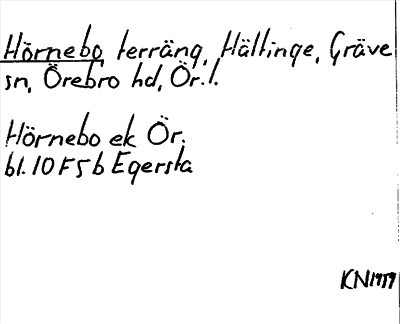 Hörnebo, terräng, Hältinge, Gräve
sn, Örebro hd, Ör. l.
Hörnebo ek Ör.
bl. 10 F 5 b Egersta
KN 1979